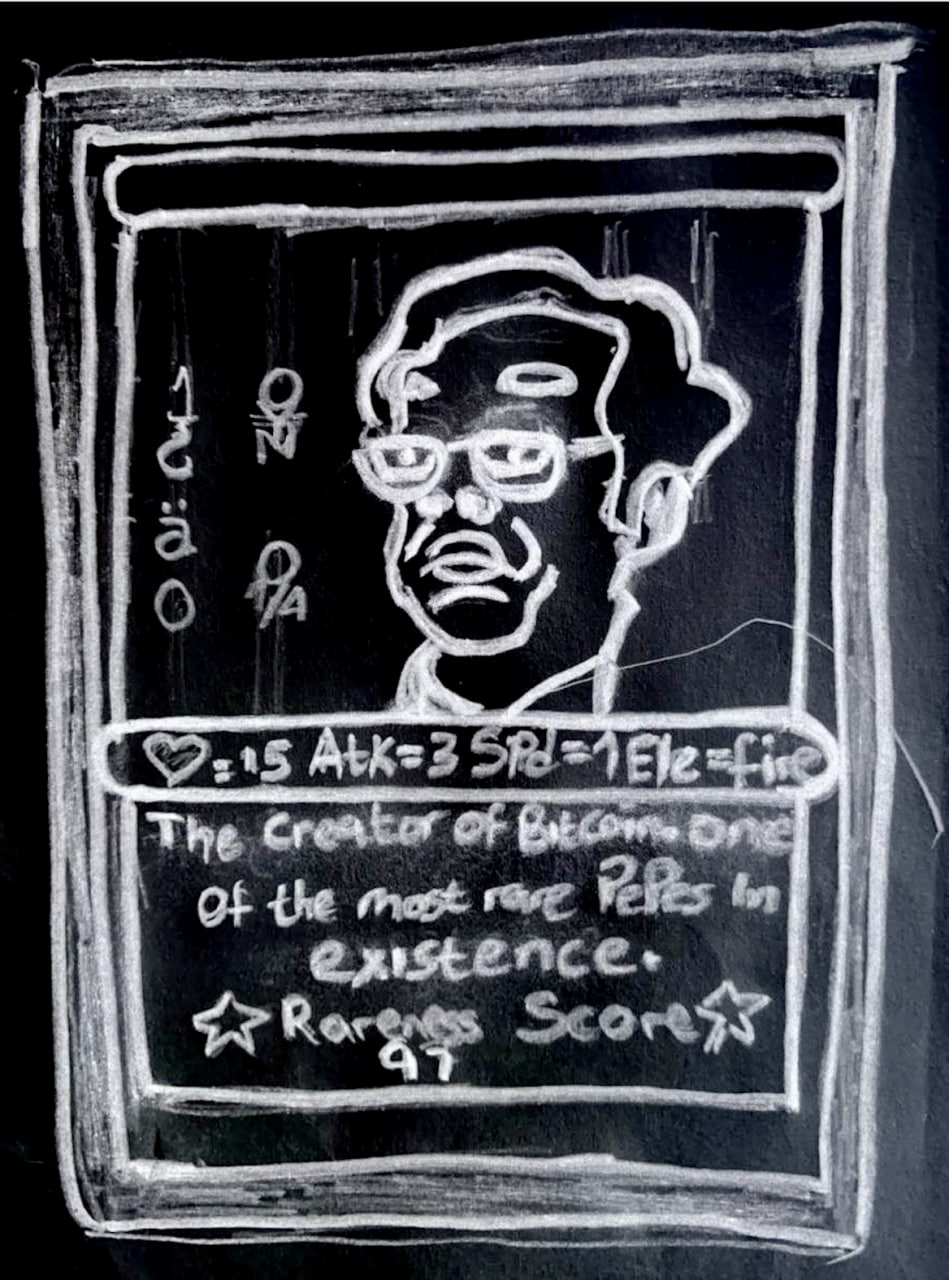 ♡=15 Atk=3 Spd=1 Ele=fire
The creator of Bitcoin. one
of the most rare PePes in
existence.
☆ Rareness Score ☆
97